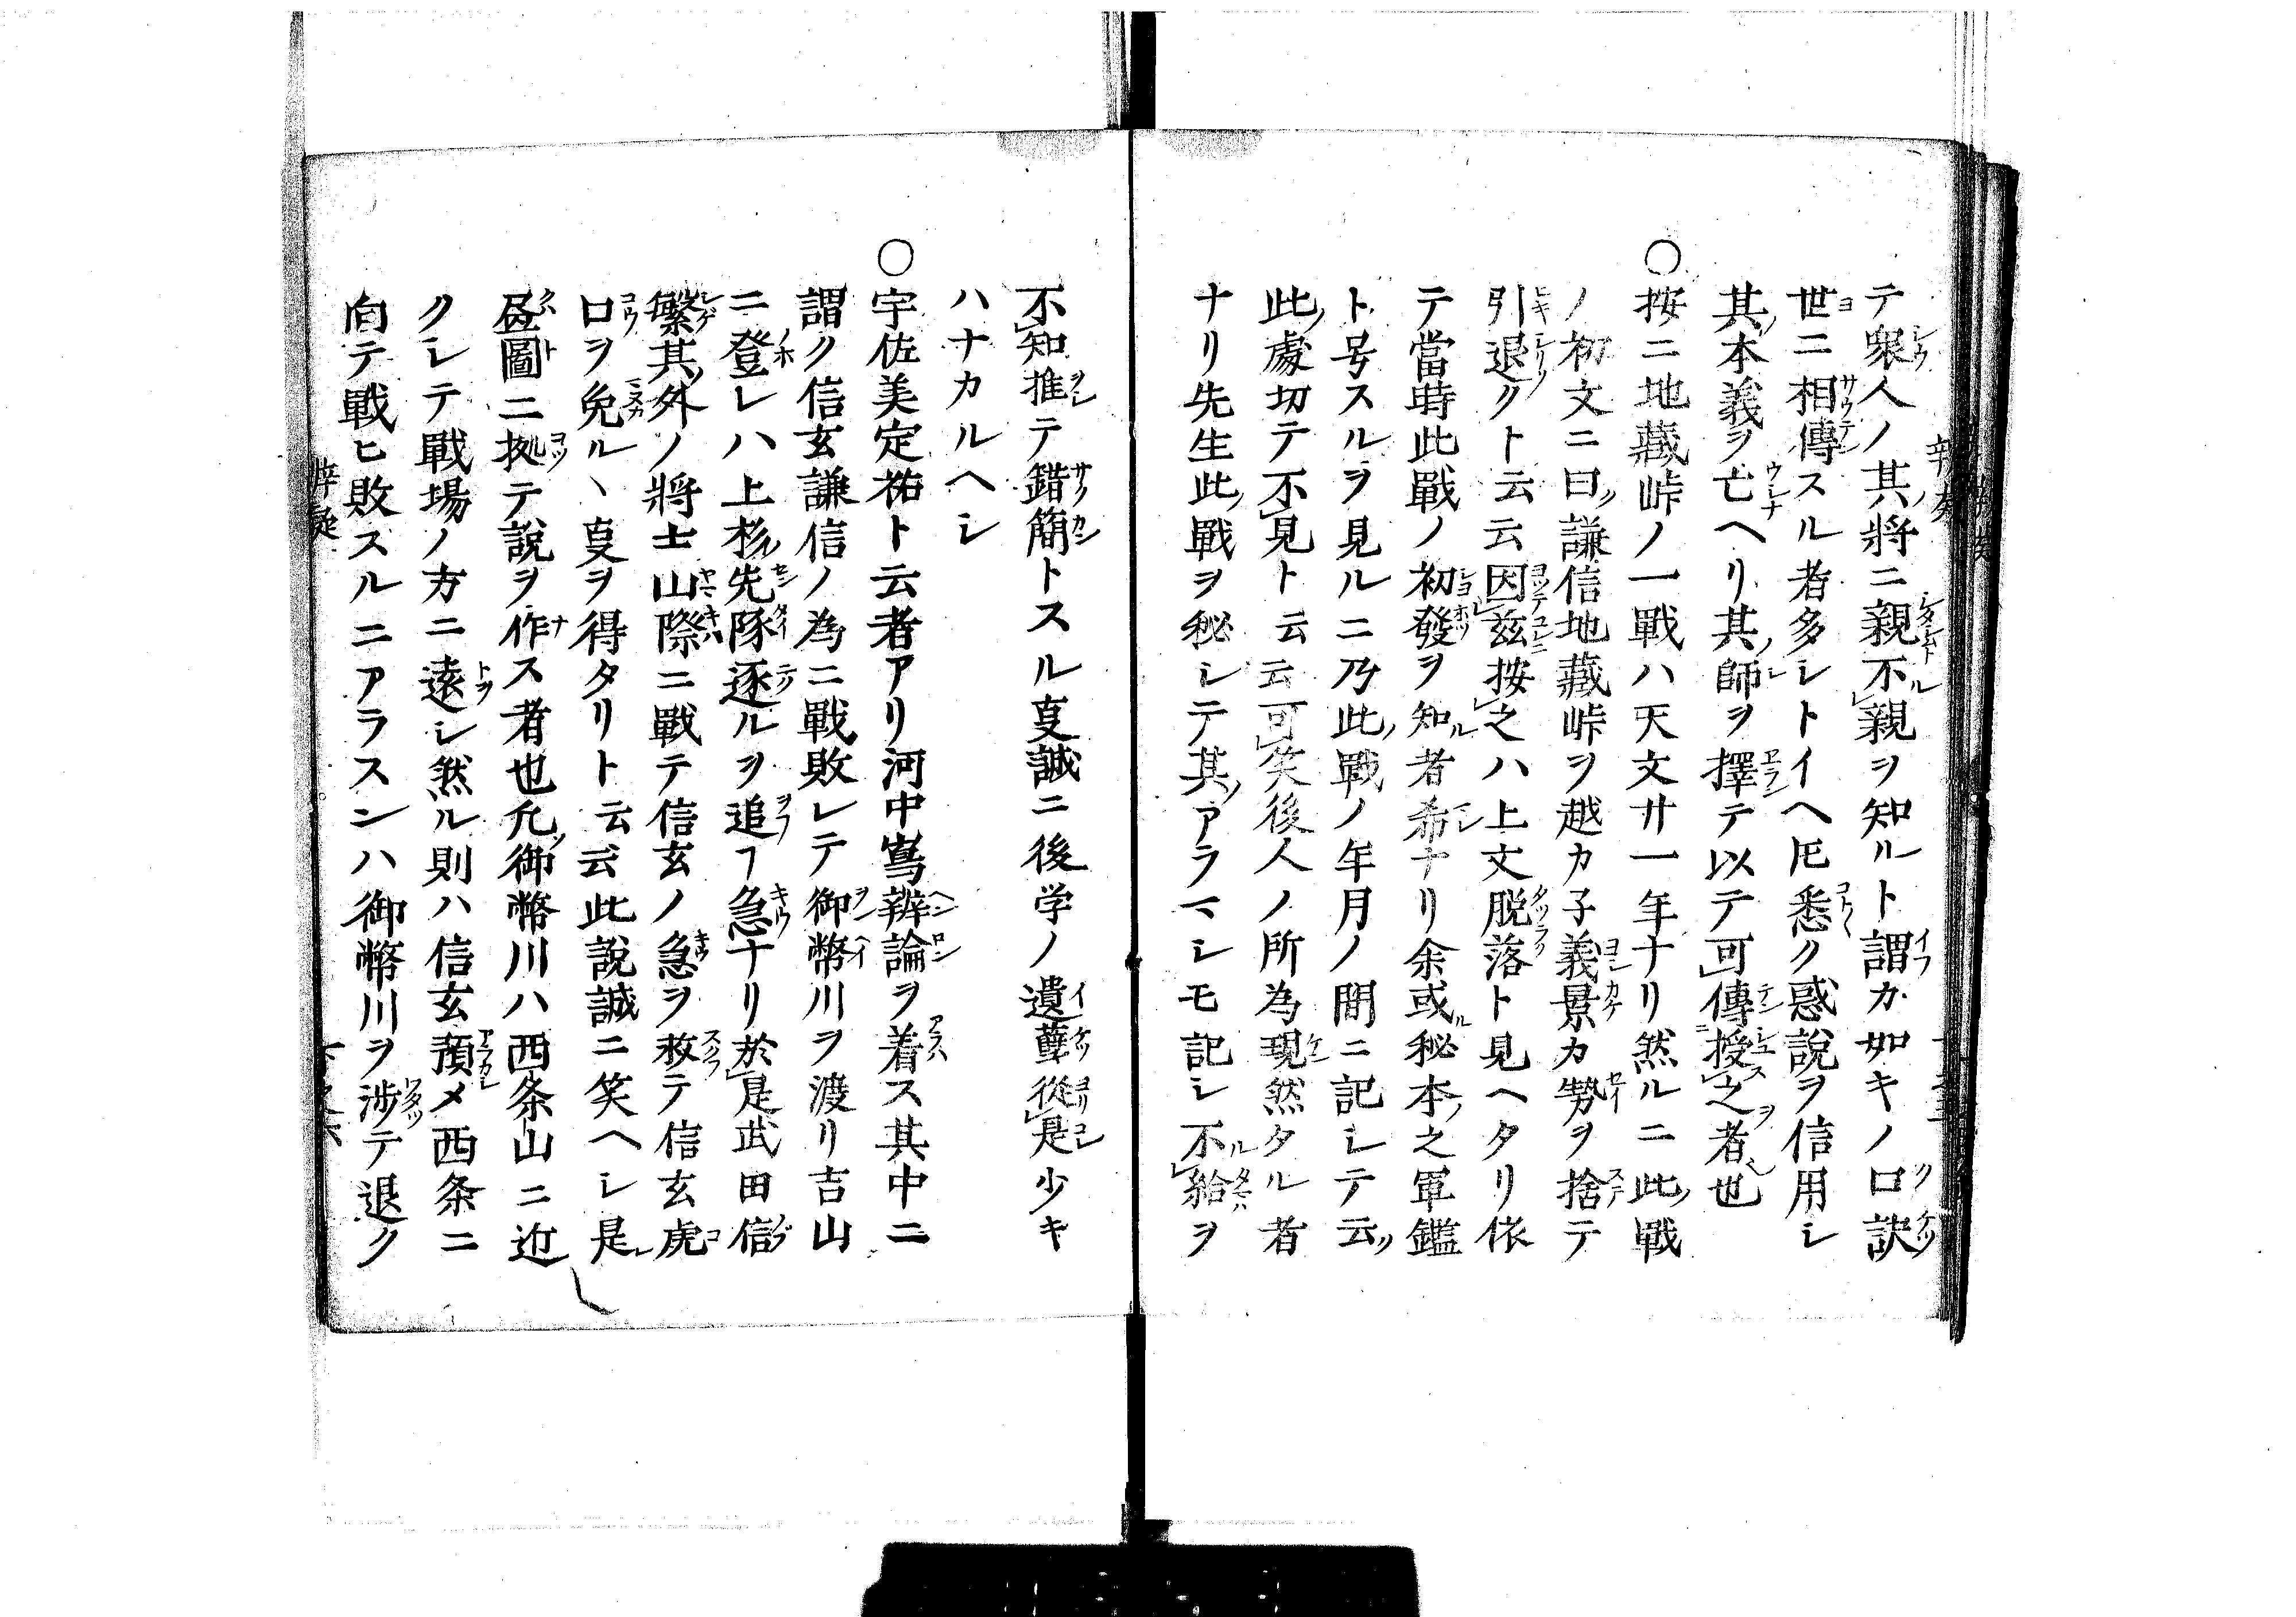 テ衆人ノ其將ニ親不親ヲ知ルト謂カ如キノ口訣
世ニ相傳スル者多シトイヘ𪜈悉ク惑説ヲ信用シ
其本義ヲ亡ヘリ其師ヲ擇テ以テ可傳授之者也
○按ニ地藏峠ノ一戰ハ天文廿一年ナリ然ルニ此戰
ノ初文ニ曰謙信地藏峠ヲ越カ子義景カ勢ヲ捨テ
引退クト云云因茲按之ハ上文脱落ト見ヘタリ依
テ當時此戰ノ初發ヲ知者希ナリ余或秘本之軍鑑
ト号スルヲ見ルニ乃此戰ノ年月ノ間ニ記シテ云
此處切テ不見ト云云可笑後人ノ所為現然タル者
ナリ先生此戰ヲ秘シテ其アラマシモ記シ不給ヲ
不知推テ錯簡トスル㕝誠ニ後学ノ遺孽從是少キ
ハナカルヘシ
○宇佐美定祐ト云者アリ河中嶌辨論ヲ着ス其中ニ
謂ク信玄謙信ノ為ニ戰敗レテ御幣川ヲ渡リ吉山
ニ登レハ上杉先隊逐ルヲ追フ急ナリ於是武田信
繁其外ノ將士山際ニ戰テ信玄ノ急ヲ救テ信玄虎
口ヲ免ルヽ㕝ヲ得タリト云云此説誠ニ笑ヘシ是
圖ニ拠テ説ヲ作ス者也凢御幣川ハ西条山ニ近
クシテ戰場ノ方ニ遠シ然ル則ハ信玄預メ西条ニ
向テ戰ヒ敗スルニアラスンハ御幣川ヲ渉テ退ク